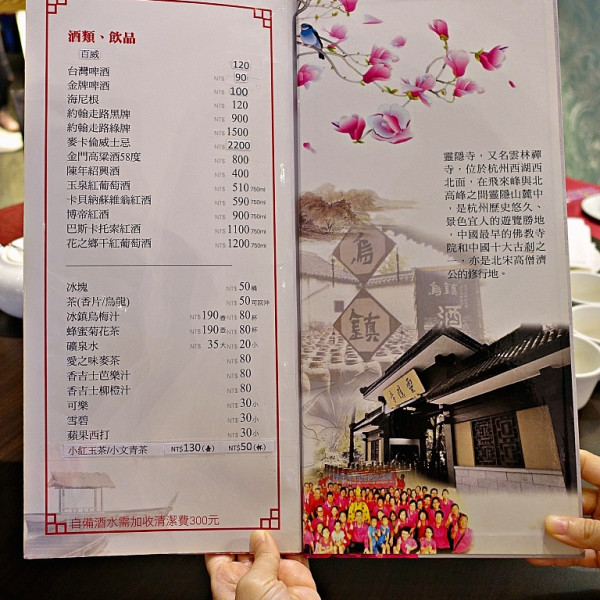 酒類、飲品
百威 120
台灣啤酒 NT$ 90
金牌啤酒 NT$ 100
海尼根 NT$ 120
約翰走路黑牌 NT$ 900
約翰走路綠牌 NT$ 1500
麥卡倫威士忌 NT$ 2200
金門高粱酒58度 NT$ 800
陳年紹興酒 NT$ 400
玉泉紅葡萄酒 NT$ 510 750ml
卡貝納蘇維翁紅酒 NT$ 590 750ml
博帝紅酒 NT$ 900 750ml
巴斯卡托索紅酒 NT$ 1100 750ml
花之鄉干紅葡萄酒 NT$ 1200 750ml
冰塊 NT$ 50 桶
茶(香片/烏龍) NT$ 50 可回沖
冰鎮烏梅汁 NT$ 190 壺 NT$ 80 杯
蜂蜜菊花茶 NT$ 190 壺 NT$ 80 杯
礦泉水 NT$ 35 大 NT$ 20 小
愛之味麥茶 NT$ 80
香吉士芭樂汁 NT$ 80
香吉士柳橙汁 NT$ 80
可樂 NT$ 30 小
雪碧 NT$ 30 小
蘋果西打 NT$ 30 小
小紅玉茶/小文青茶 NT$130(壺) NT$50(杯)
自備酒水需加收清潔費300元
靈隱寺，又名雲林禪
寺，位於杭州西湖西
北面，在飛來峰與北
高峰之間靈隱山麓中
，是杭州歷史悠久、
景色宜人的遊覽勝地
，中國最早的佛教寺
院和中國十大古剎之
一，亦是北宋高僧濟
公的修行地。
烏
鎮
烏鎮
酒
靈隱寺